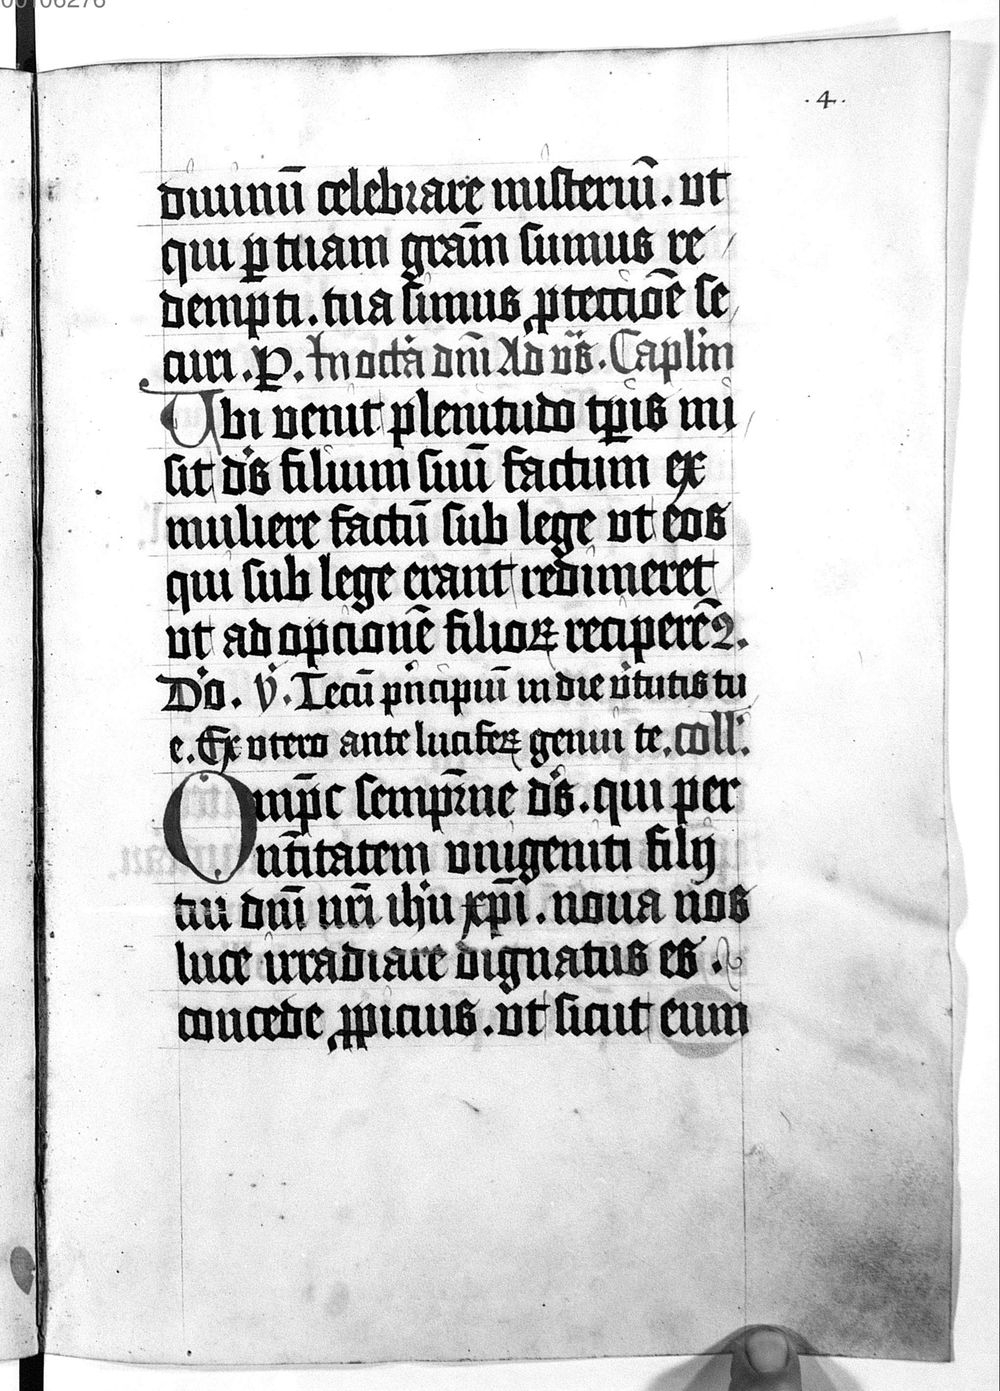 00106276
·4·
diuinū celebrare misteriū. vt
qui ꝑ tuam grām sumus re
dempti. tua simus ꝓteccioē se
curi. P. In octa dnī Ad vꝰs. Caplm
Ubi venit plenitudo tꝑis mi
sit dꝰs filium suū factum ex
muliere factū sub lege vt eos
qui sub lege erant redimeret
vt ad opcionē filioꝝ reciperēꝰ.
Do. V. Tecū pncipiū in die v̄tutis tu
e. Ex vtero ante lucifeꝝ genui te. coll.
Omp̄c semp̄rne dꝰs. qui per
nt̄itatem vnigeniti filij
tui dnī nrī ihū xp̄i. noua nos
luce irradiare dignatus es.
concede ꝓpicius. vt sicut eum